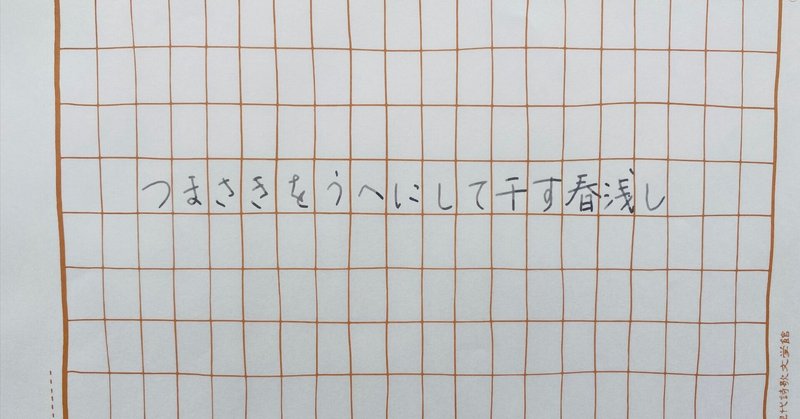 つまさきをうへにして干す春浅し
代詩歌文学館